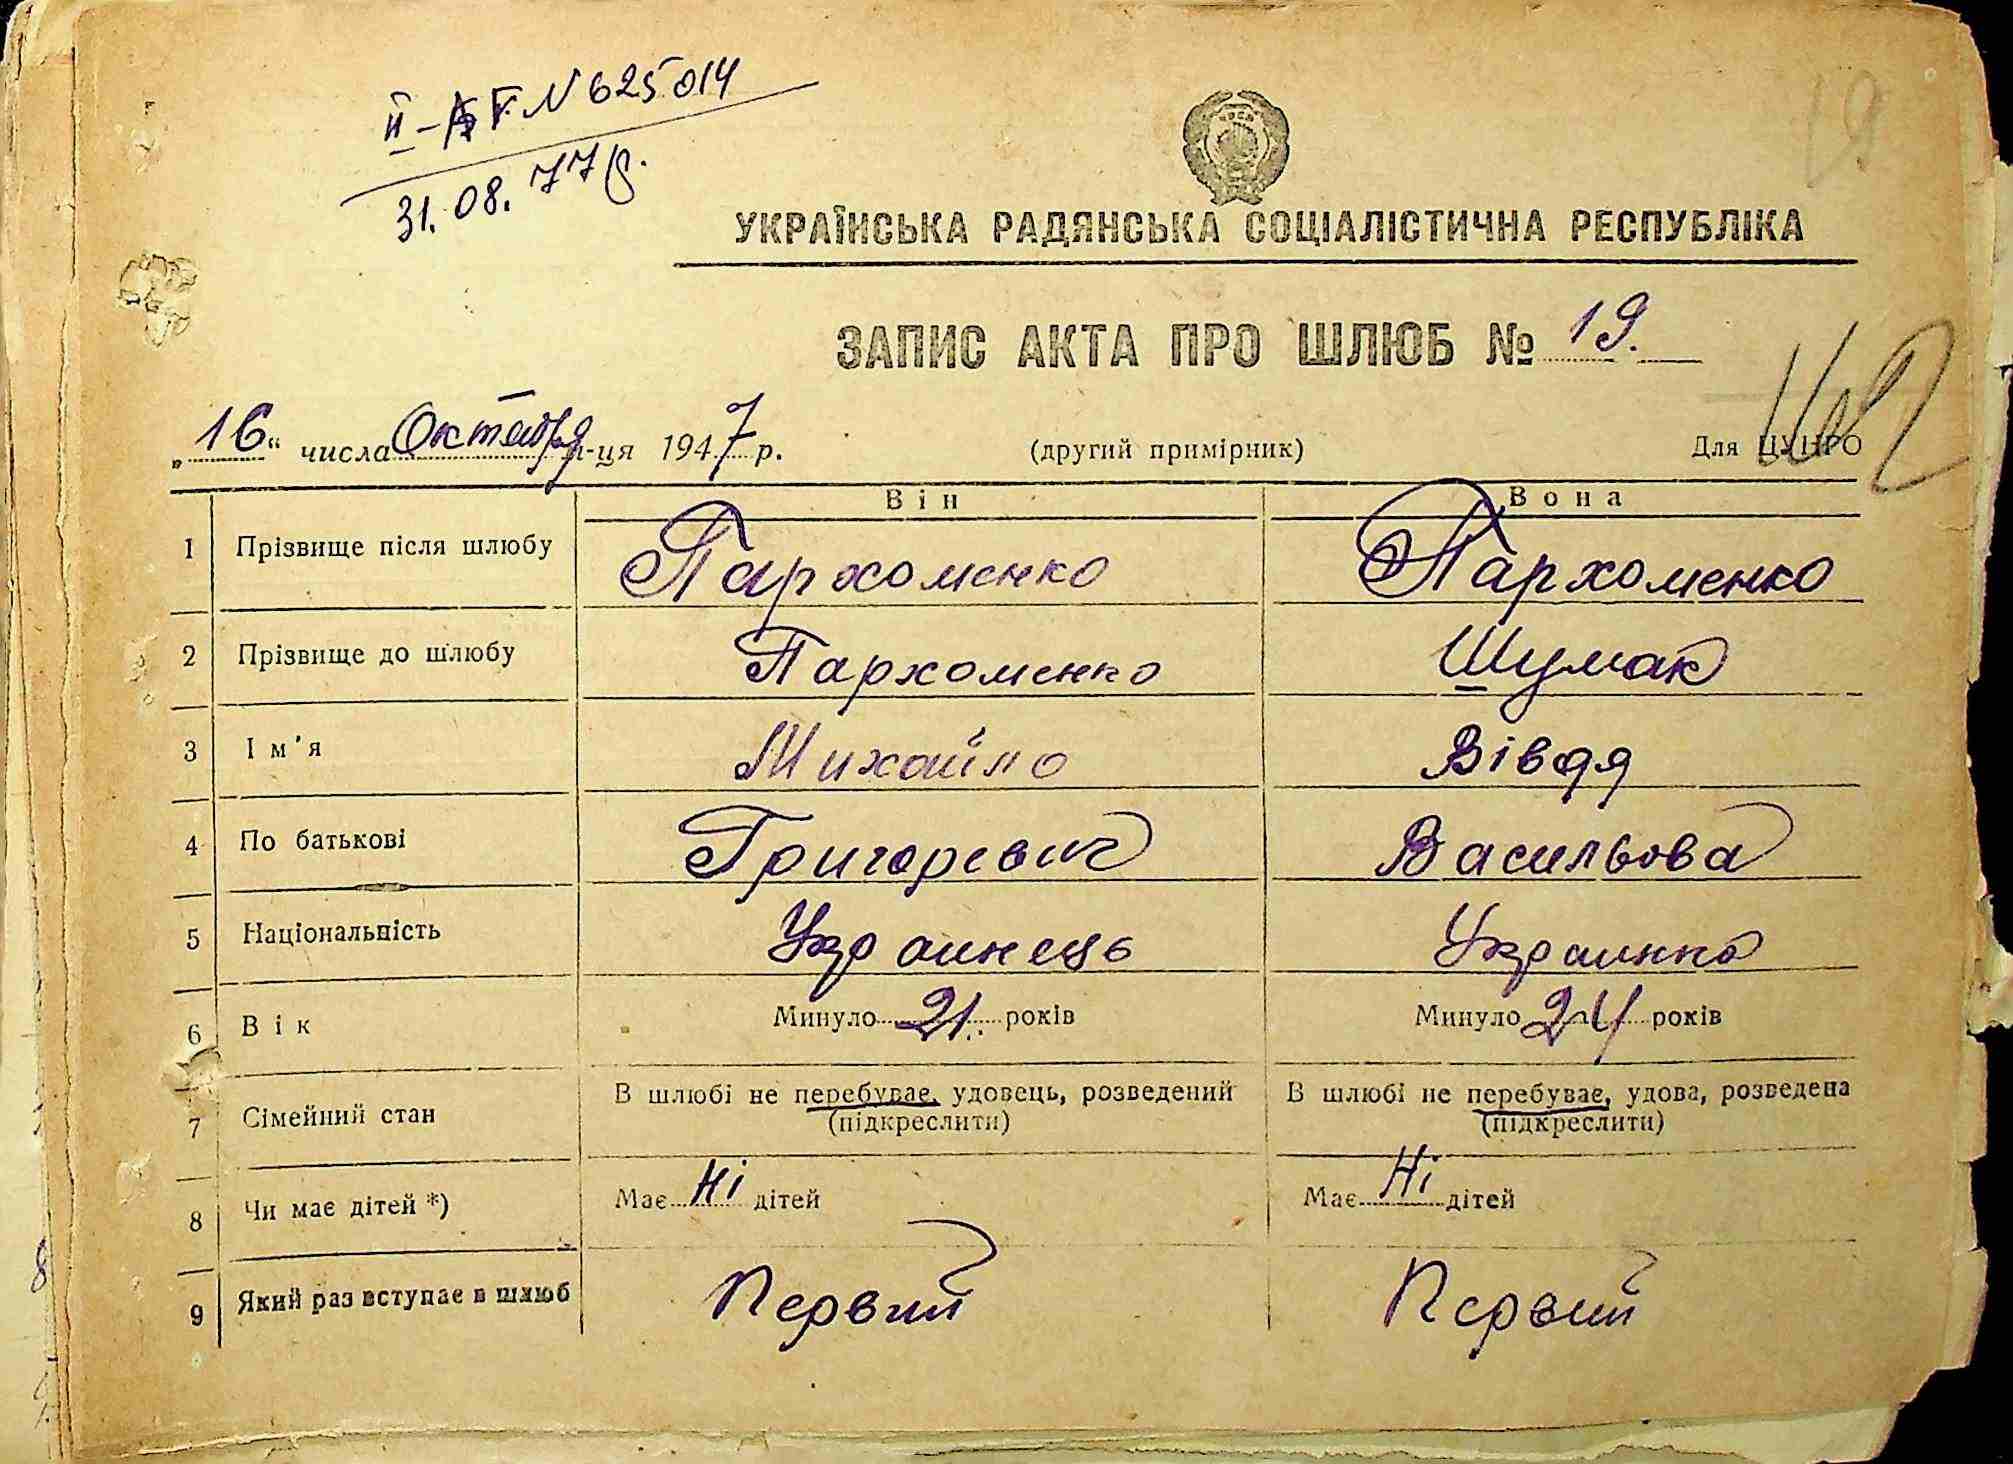 II-БГ N 625014
31.08.77р.
19
УКРАЇНСЬКА РАДЯНСЬКА СОЦІАЛІСТИЧНА РЕСПУБЛІКА
ЗАПИС АКТА ПРО ШЛЮБ № 19.
„16“ числа Октября м-ця 1947 р. (другий примірник) Для ЦУНРО
Він Вона
1 Прізвище після шлюбу Пархоменко Пархоменко
2 Прізвище до шлюбу Пархоменко Шумак
3 Ім'я Михайло Вівдя
4 По батькові Григоревич Васильова
5 Національність Украинець Украинка
6 Вік Минуло 21. років Минуло 24 років
7 Сімейний стан В шлюбі не перебуває, удовець, розведений В шлюбі не перебуває, удова, розведена
(підкреслити) (підкреслити)
8 Чи має дітей *) Має Ні дітей Має Ні дітей
9 Який раз вступає в шлюб Первий Первий